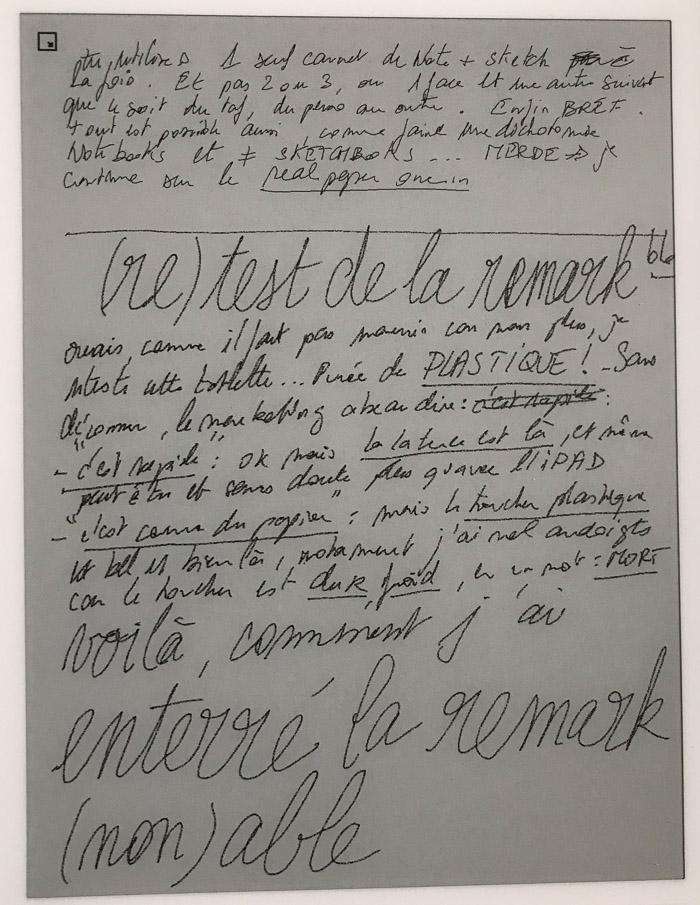 utiliser 1 seul carnet de Note + sketch
la fois. Et pas 2 ou 3, ou 1 face et une autre suivant
que ce soit du taf, du perso ou autre. Enfin BREF.
tout est possible aussi, comme faire une dichotomie
Notebooks et ≠ SKETCHBOOKS... MERDE → je
continue sur le real paper
(re)test de la remark ble
ouais, comme il faut pas mourir con non plus, je
reteste cette tablette... Purée de PLASTIQUE! - Sans
déconner, le marketing a beau dire: c'est rapide:
- "c'est rapide": OK mais la latence est là, et même
peut être et sans doute plus qu'avec l'iPAD
- "c'est comme du papier": mais le toucher plastique
est bel et bien là, notamment j'ai mal au doigts
car le toucher est dur, froid, en un mot: MORT
voilà, comment j'ai
enterré la remark
(non)able